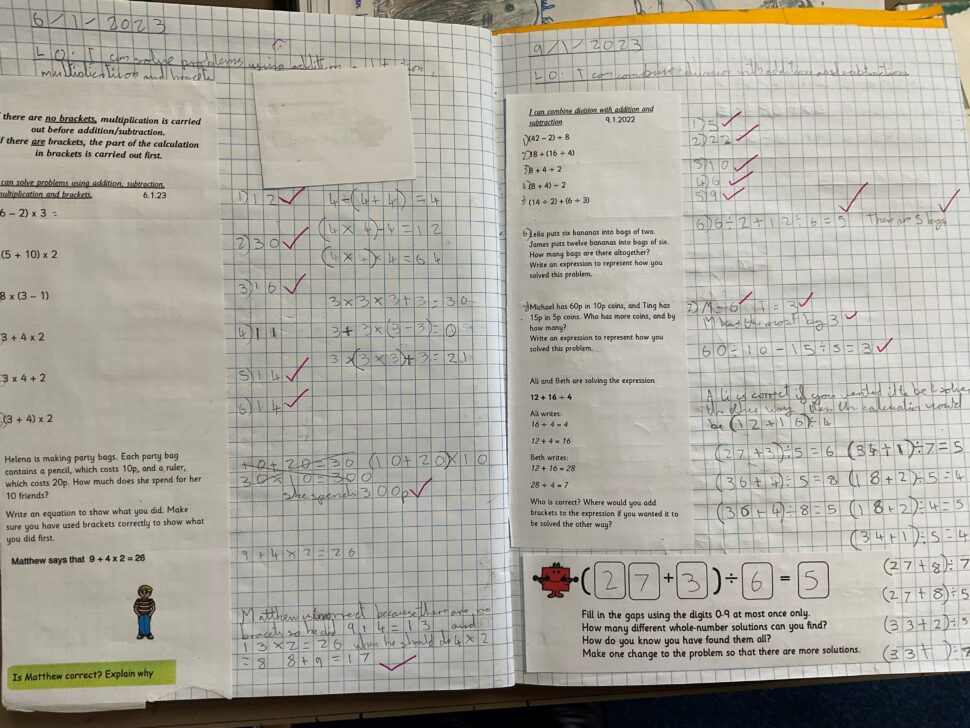 6/1/2023
LO: I can solve problems using addition,
multiplication and brackets
there are no brackets, multiplication is carried
out before addition/subtraction.
f there are brackets, the part of the calculation
in brackets is carried out first.
can solve problems using addition, subtraction,
multiplication and brackets. 6.1.23
6 – 2) x 3 =
(5 + 10) x 2
8 x (3 – 1)
3 + 4 x 2
3 x 4 + 2
(3 + 4) x 2
Helena is making party bags. Each party bag
contains a pencil, which costs 10p, and a ruler,
which costs 20p. How much does she spend for her
10 friends?
Write an equation to show what you did. Make
sure you have used brackets correctly to show what
you did first.
Matthew says that 9 + 4 x 2 = 26
Is Matthew correct? Explain why
1) 12
2) 30
3) 16
4) 11
5) 14
6) 14
4÷(4+4)=4
(4×4)-4=12
(4×4)×4=64
3×3×3+3=30
3+3×(3-3)=0
3×(3×3)+3=21
10+20=30 (10+20)×10
30×10=300
she spends 300p
9+4×2=26
Matthew is incorrect because there are no
brackets so he did 9+4=13 and
13×2=26 when he should do 4×2
=8 8+9=17
9/1/2023
LO: I can combine division with addition and subtraction
I can combine division with addition and
subtraction 9.1.2022
1) (42 – 2) ÷ 8
2) 18 + (16 ÷ 4)
3) 8 + 4 ÷ 2
4) (8 + 4) ÷ 2
5) (14 ÷ 2) + (6 ÷ 3)
6) Leila puts six bananas into bags of two.
James puts twelve bananas into bags of six.
How many bags are there altogether?
Write an expression to represent how you
solved this problem.
7) Michael has 60p in 10p coins, and Ting has
15p in 5p coins. Who has more coins, and by
how many?
Write an expression to represent how you
solved this problem.
Ali and Beth are solving the expression
12 + 16 ÷ 4
Ali writes:
16 ÷ 4 = 4
12 + 4 = 16
Beth writes:
12 + 16 = 28
28 ÷ 4 = 7
Who is correct? Where would you add
brackets to the expression if you wanted it to
be solved the other way?
1) 5
2) 22
3) 10
4) 6
5) 9
6) 6÷2+12÷6=5 There are 5 bags
7) M=6 T=3
M has the most by 3
60÷10-15÷5=3
Ali is correct if you wanted it to be solved
the other way then the calculation would
be (12+16)÷4
(27+3)÷5=6 (34+1)÷7=5
(36+4)÷5=8 (18+2)÷5=4
(36+4)÷8=5 (18+2)÷4=5
(34+1)÷5=4
(27+8)÷7
(27+8)÷5
(33+2)÷5
(33+
(27+3)÷6=5
Fill in the gaps using the digits 0-9 at most once only.
How many different whole-number solutions can you find?
How do you know you have found them all?
Make one change to the problem so that there are more solutions.